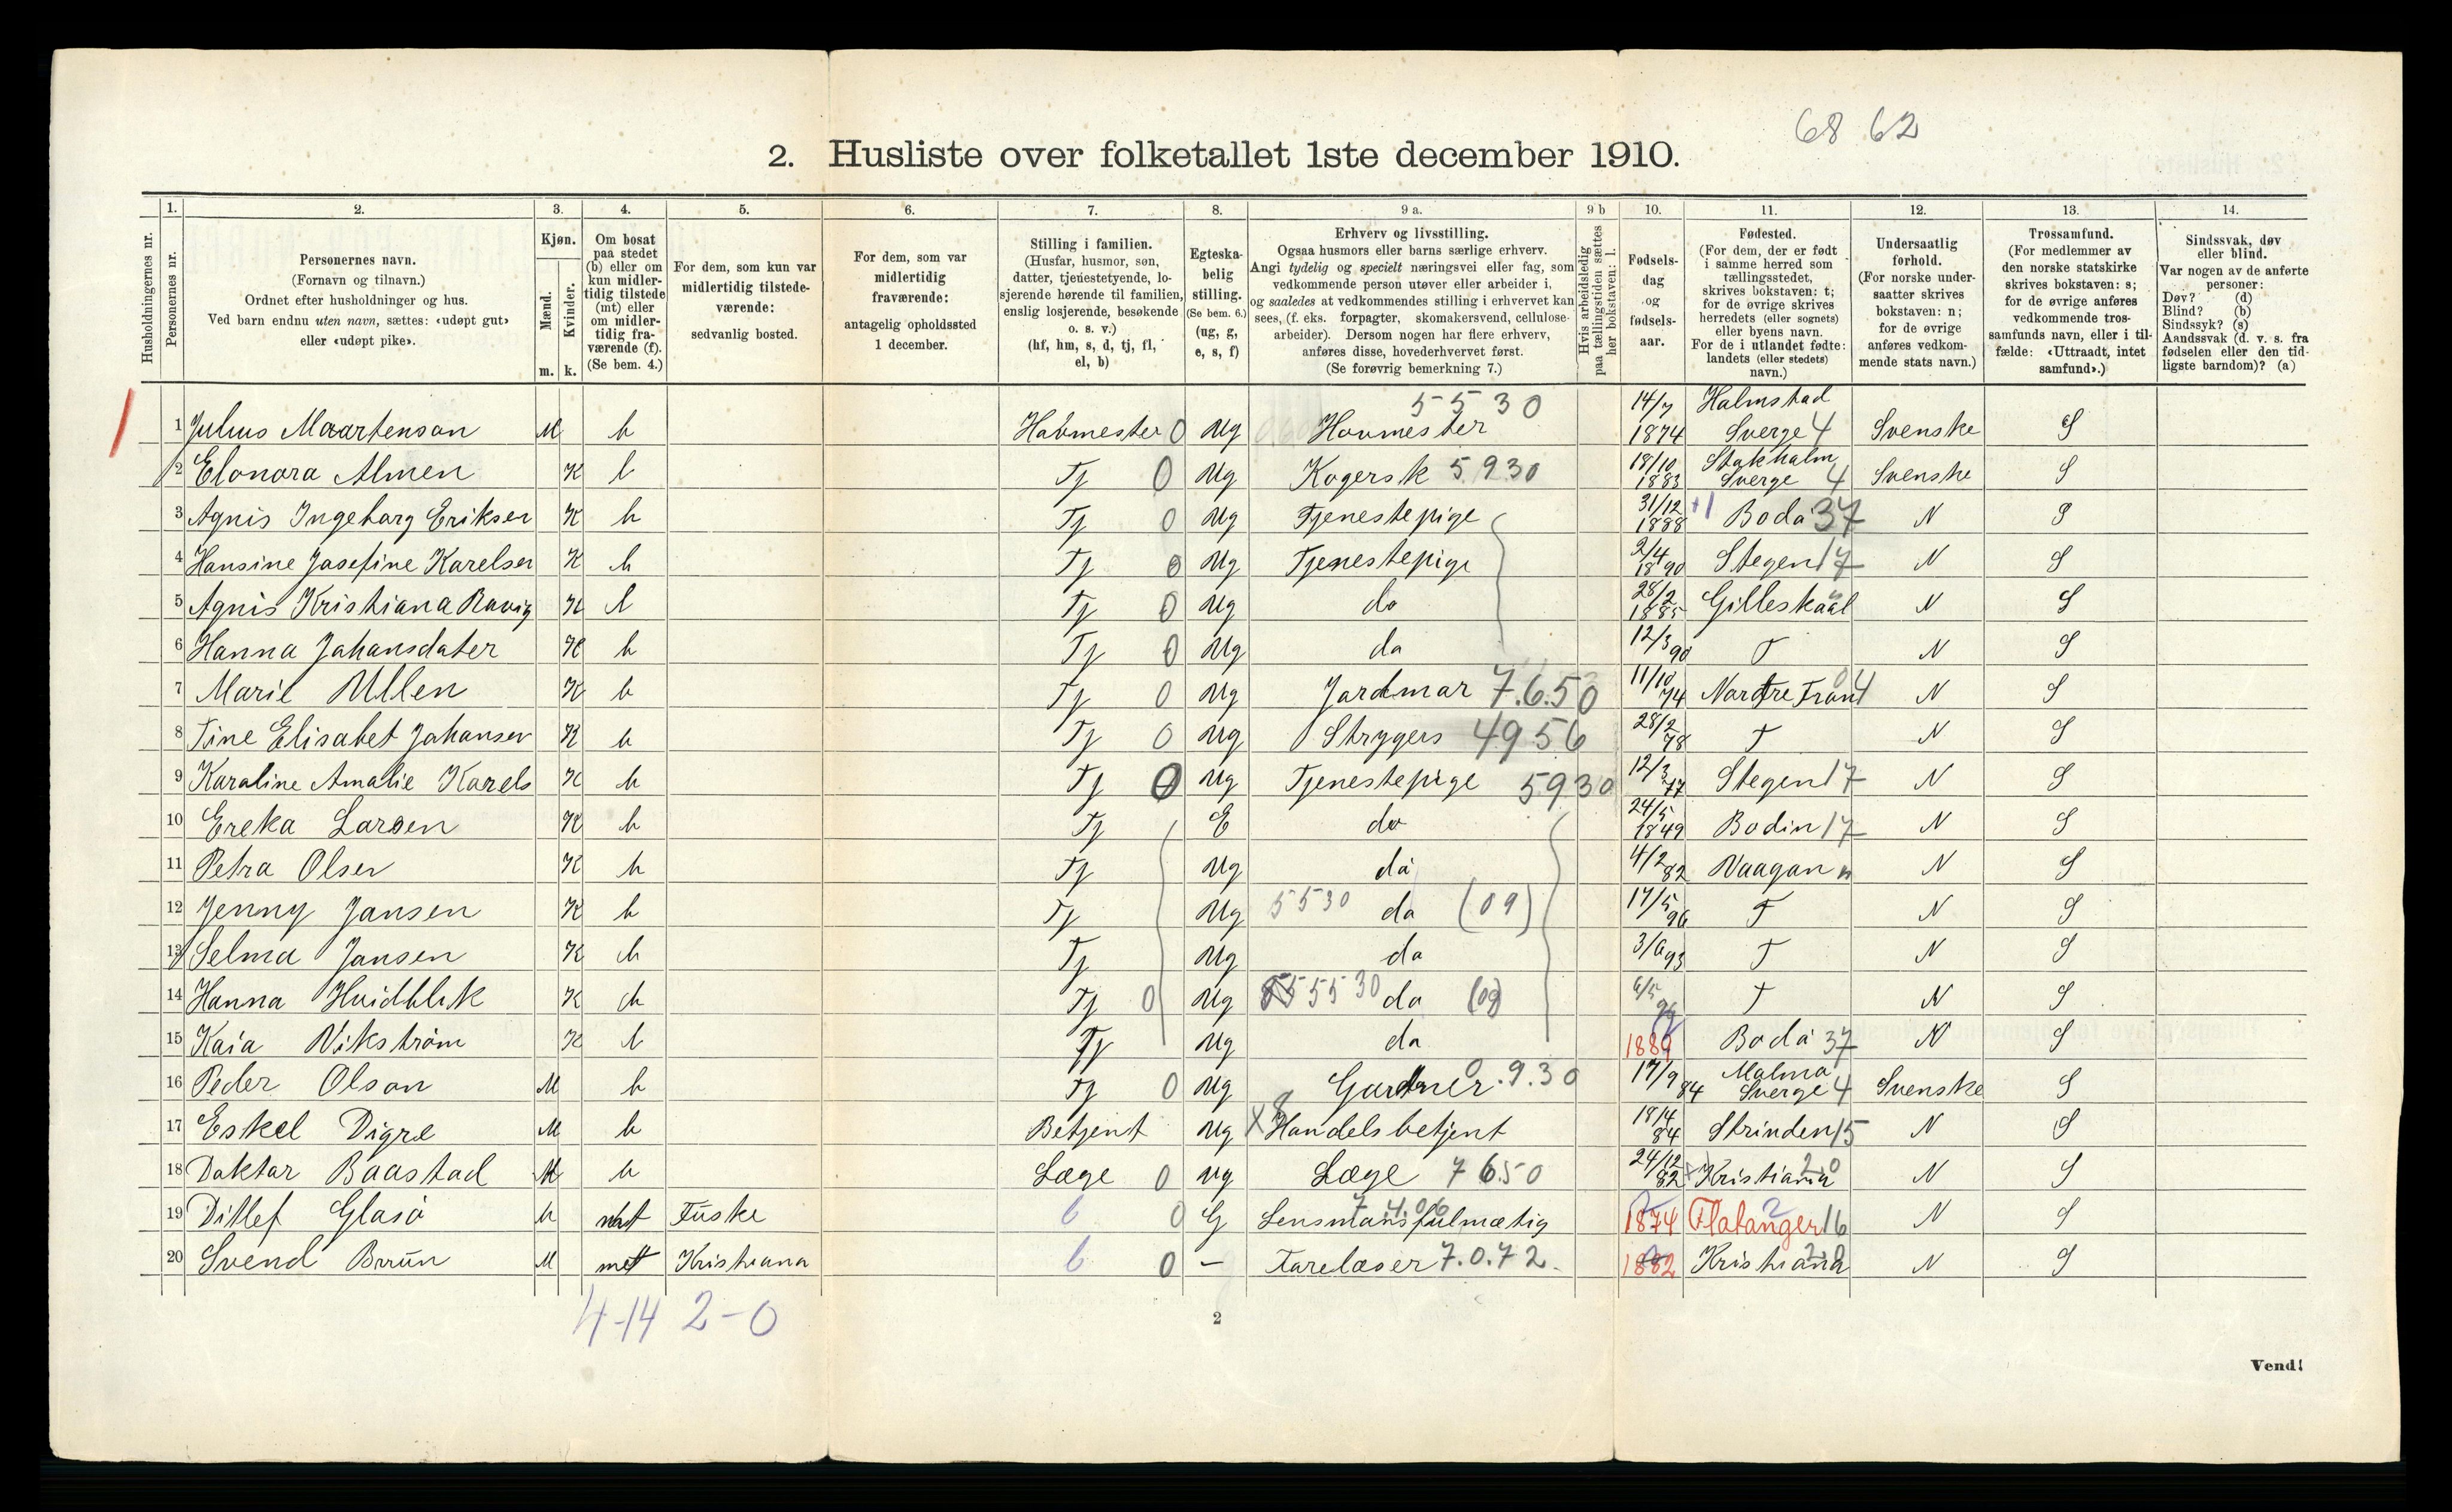 68 62
2. Husliste over folketallet 1ste december 1910.
Husholdningernes nr.
1.
Personernes nr.
2.
Personernes navn.
(Fornavn og tilnavn.)
Ordnet efter husholdninger og hus.
Ved barn endnu uten navn, sættes: «udøpt gut»
eller «udøpt pike».
3.
Kjøn.
Mænd.
Kvinder.
m. k.
4.
Om bosat
paa stedet
(b) eller om
kun midler-
tidig tilstede
(mt) eller
om midler-
tidig fra-
værende (f).
(Se bem. 4.)
5.
For dem, som kun var
midlertidig tilstede-
værende:
sedvanlig bosted.
6.
For dem, som var
midlertidig
fraværende:
antagelig opholdssted
1 december.
7.
Stilling i familien.
(Husfar, husmor, søn,
datter, tjenestetyende, lo-
sjerende hørende til familien,
enslig losjerende, besøkende
o. s. v.)
(hf, hm, s, d, tj, fl,
el, b)
8.
Egteska-
belig
stilling.
(Se bem. 6.)
(ug, g,
e, s, f)
9 a.
Erhverv og livsstilling.
Ogsaa husmors eller barns særlige erhverv.
Angi tydelig og specielt næringsvei eller fag, som
vedkommende person utøver eller arbeider i,
og saaledes at vedkommendes stilling i erhvervet kan
sees, (f. eks. forpagter, skomakersvend, cellulose-
arbeider). Dersom nogen har flere erhverv,
anføres disse, hovederhvervet først.
(Se forøvrig bemerkning 7.)
9 b
Hvis arbeidsledig
paa tællingstiden sættes
her bokstaven: l.
10.
Fødsels-
dag
og
fødsels-
aar.
11.
Fødested.
(For dem, der er født
i samme herred som
tællingsstedet,
skrives bokstaven: t;
for de øvrige skrives
herredets (eller sognets)
eller byens navn.
For de i utlandet fødte:
landets (eller stedets)
navn.)
12.
Undersaatlig
forhold.
(For norske under-
saatter skrives
bokstaven: n;
for de øvrige
anføres vedkom-
mende stats navn.)
13.
Trossamfund.
(For medlemmer av
den norske statskirke
skrives bokstaven: s;
for de øvrige anføres
vedkommende tros-
samfunds navn, eller i til-
fælde: «Uttraadt, intet
samfund».)
14.
Sindssvak, døv
eller blind.
Var nogen av de anførte
personer:
Døv? (d)
Blind? (b)
Sindssyk? (s)
Aandssvak (d. v. s. fra
fødselen eller den tid-
ligste barndom)? (a)
1 Julius Maartenson M b Habmester 0 Ug Hovmester 5530 14/7 1874 Halmstad Sverge 4 Svenske S
2 Elonora Almen K b Tj 0 Ug Kogersk 5930 18/10 1883 Stokholm Sverge 4 Svenske S
3 Agnis Ingeborg Eriksen K b Tj 0 Ug Tjenestepige 31/12 1888 Bodø 37 N S
4 Hansine Josefine Karelsen K b Tj 0 Ug Tjenestepige 2/4 1890 Stegen 17 N S
5 Agnis Kristiana K b Tj 0 Ug do 28/2 1885 Gilleskaal N S
6 Hanna Johansdater K b Tj 0 Ug do 12/3 90 T N S
7 Marie Ullen K b Tj 0 Ug Jordmor 7.6.50 11/10 74 N S
8 Tine Elisabet Johansen K b Tj 0 Ug Strygers 4956 28/2 78 T N S
9 Karoline Amalie Karels K b Tj 0 Ug Tjenestepige 5930 12/3 77 Stegen 17 N S
10 Ereka Larsen K b Tj E do 24/5 1849 Bodin 17 N S
11 Petra Olsen K b Tj Ug do 4/2 82 Vaagan N S
12 Jenny Jansen K b Tj Ug 5530 do (09) 17/5 96 T N S
13 Selma Jansen K b Tj Ug do 3/6 93 T N S
14 Hanna Hvidblik K b Tj 0 Ug 5530 do (09) 6/5 T N S
15 Kaia Vikstrøm K b Tj Ug do 1889 Bodø 37 N S
16 Peder Olson M b Tj 0 Ug Gartner 0.9.30 17/9 84 Malmø Sverge 4 Svenske S
17 Eskel Digre M b Betjent Ug Handelsbetjent 18/4 84 Strinden 15 N S
18 Doktor Baastad M b Læge 0 Ug Læge 7650 24/12 82 Kristiania 20 N S
19 Ditlef Glasø M mt Fuske b 0 G Lensmansfulmætig 7.4.06 1874 Flatanger 16 N S
20 Svend Bruun M mt Kristiana b 0 - Forelæser 7.0.72 1882 Kristiania N S
4-14 2-0
2
Vend!